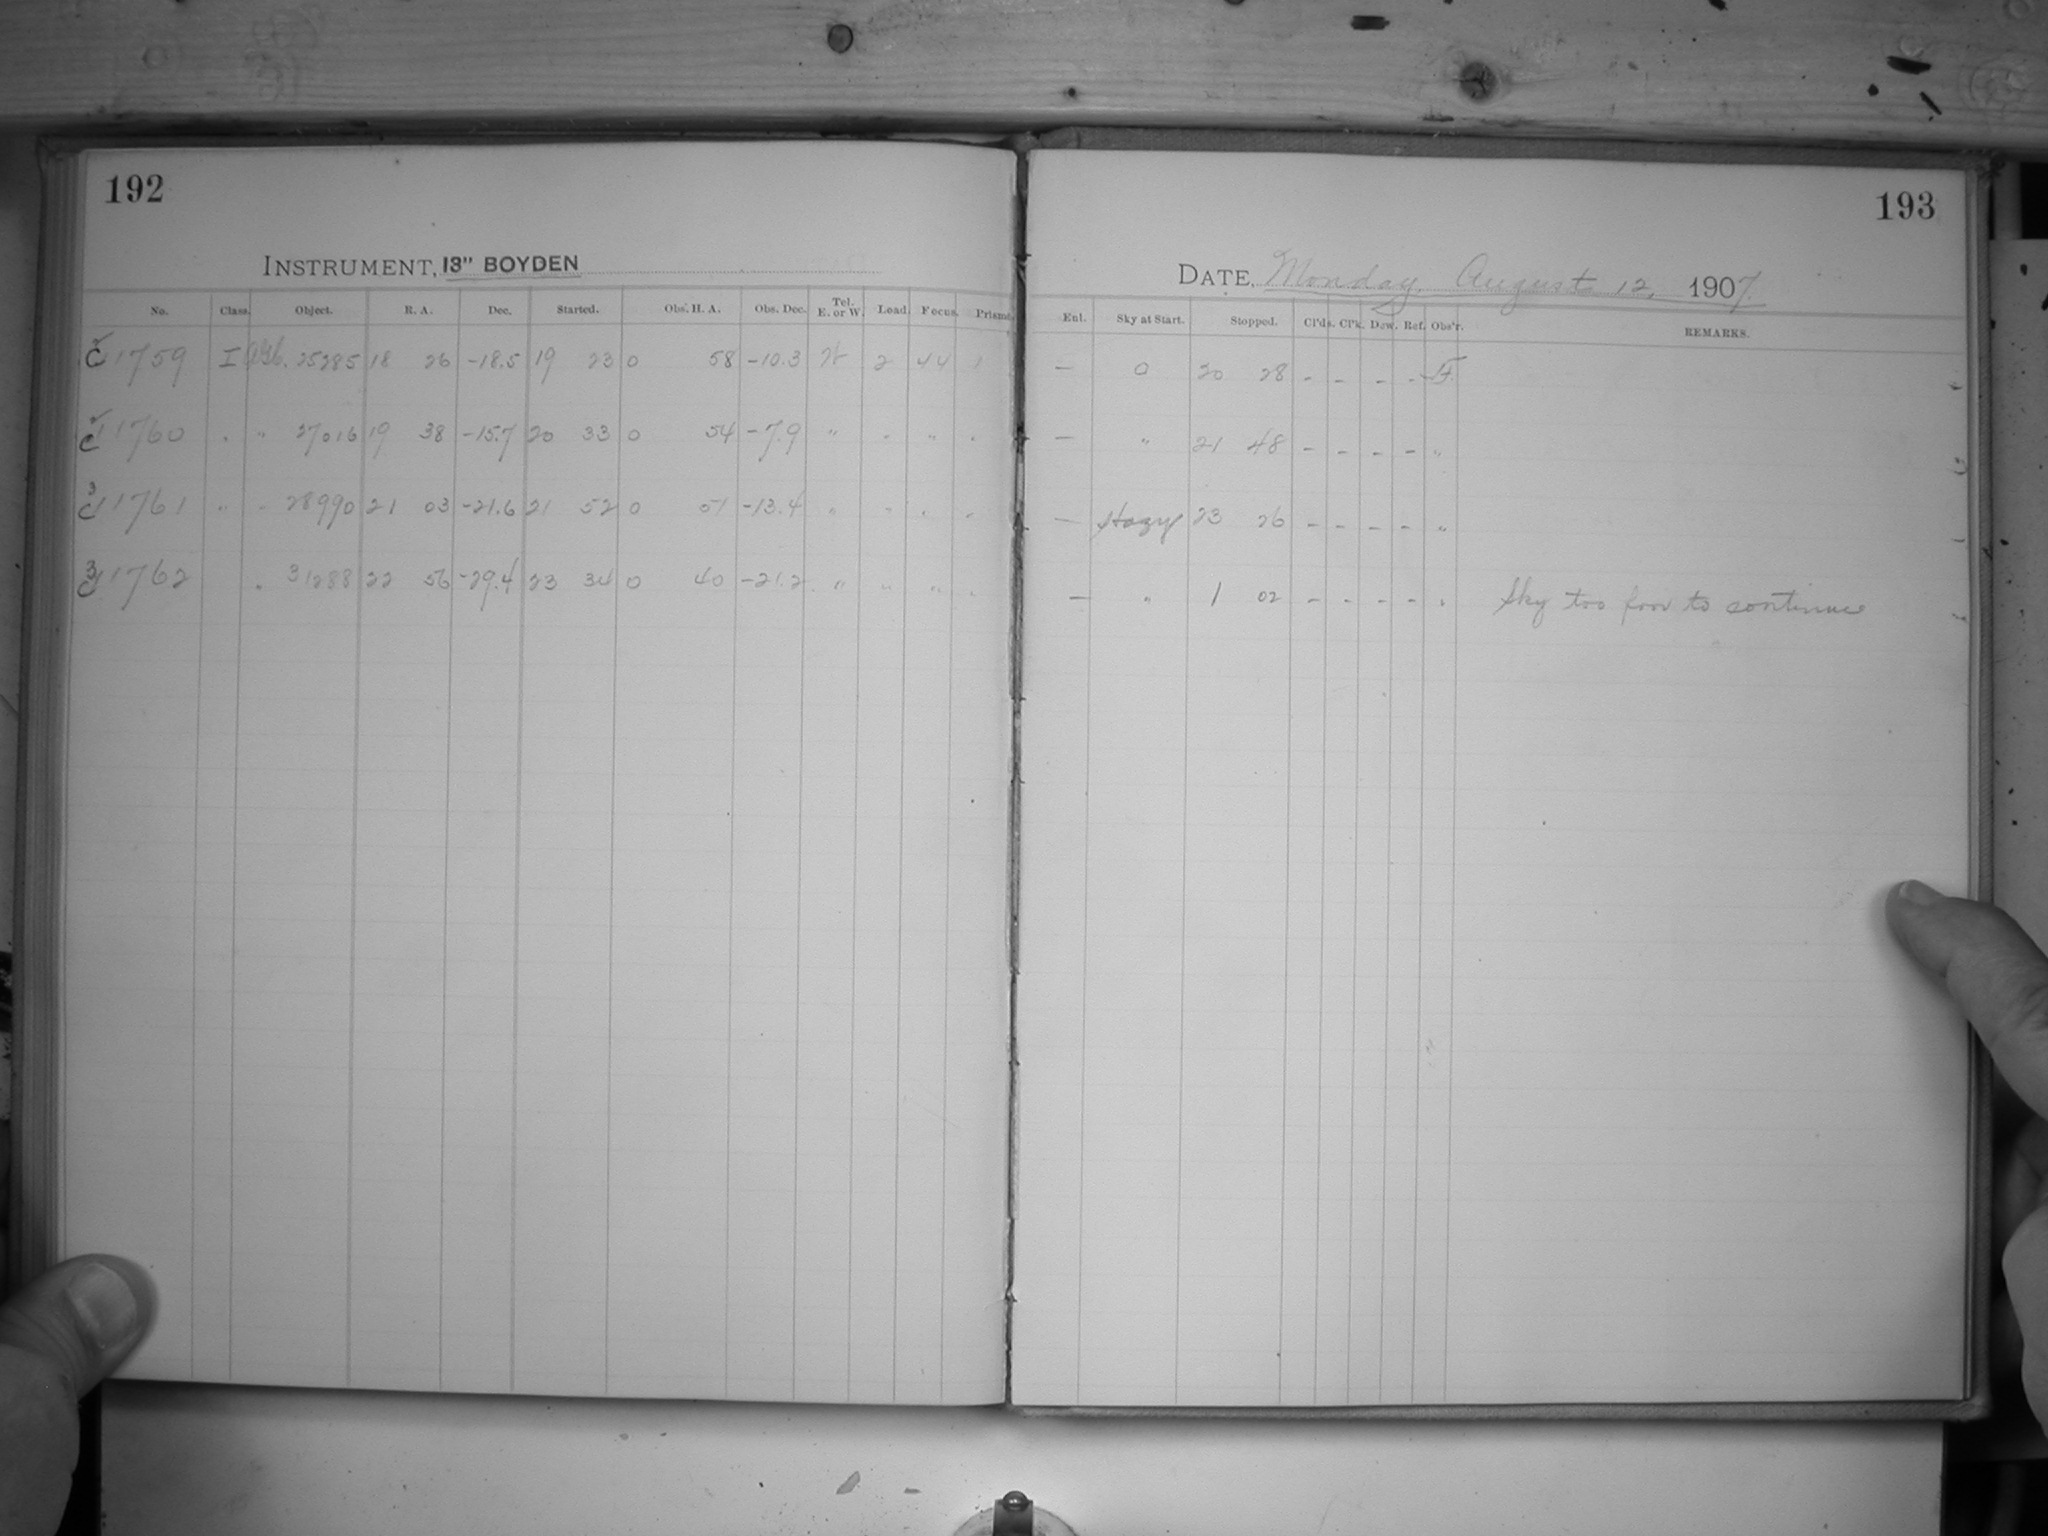 192
INSTRUMENT, 13" BOYDEN
No. Class. Object. R. A. Dec. Started. Obs. H. A. Obs. Dec. Tel. E. or W. Load. Focus. Prisms.
11759 I 25285 18 26 -18.5 19 23 0 58 -10.3 W 2 44 1
11760 " " 27016 19 38 -15.7 20 33 0 54 -7.9 " " " "
11761 " " 28990 21 03 -21.6 21 52 0 51 -13.4 " " " "
11762 " 31288 22 56 -29.4 23 34 0 40 -21.2 " " " "
193
DATE, Monday, August 12, 1907.
Enl. Sky at Start. Stopped. Cl'ds. Cl'k. Dew. Ref. Obs'r. REMARKS.
— 0 20 28 - - - - F
— " 21 48 - - - - "
— Hazy 23 26 - - - - "
— " 1 02 - - - - " Sky too poor to continue